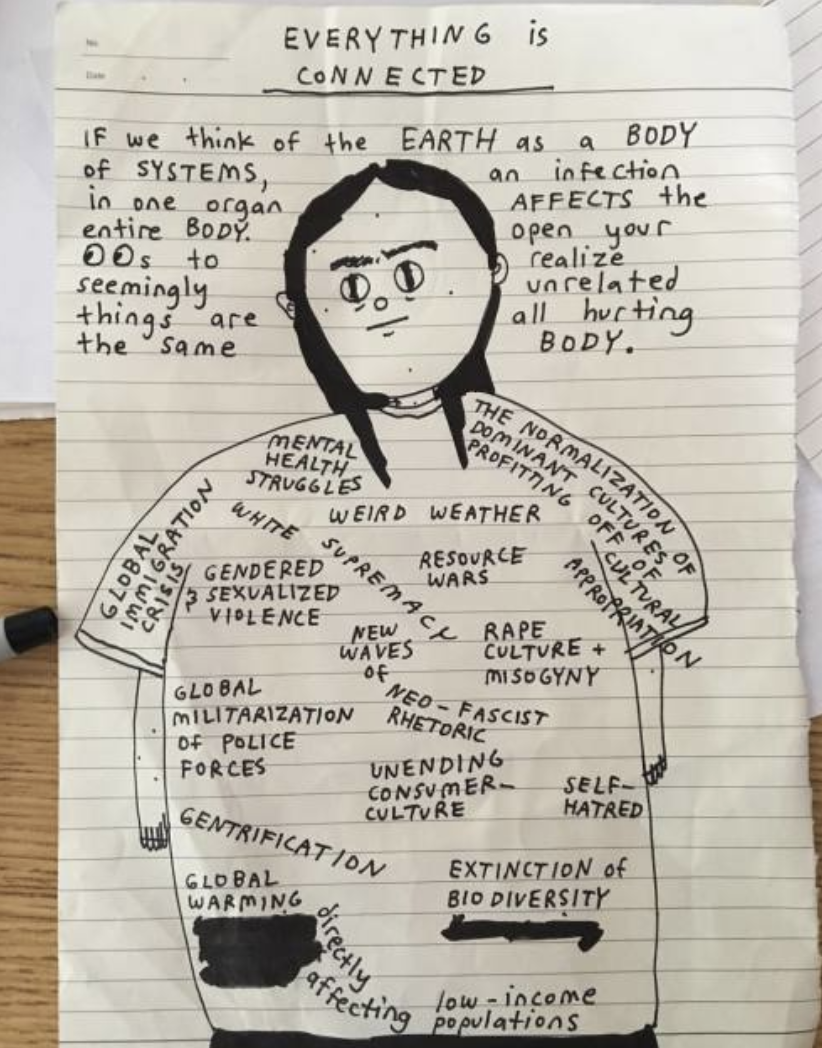 No
Date
EVERYTHING is
CONNECTED
IF we think of the EARTH as a BODY
of SYSTEMS, an infection
in one organ AFFECTS the
entire BODY. open your
👀s to realize
seemingly unrelated
things are all hurting
the same BODY.
MENTAL
HEALTH
STRUGGLES
THE NORMALIZATION OF
DOMINANT CULTURES
PROFITTING OFF OF
CULTURAL
APPROPRIATION
GLOBAL
IMMIGRATION
CRISIS
WEIRD WEATHER
WHITE SUPREMACY
GENDERED
& SEXUALIZED
VIOLENCE
RESOURCE
WARS
NEW
WAVES
OF
NEO-FASCIST
RHETORIC
RAPE
CULTURE +
MISOGYNY
GLOBAL
MILITARIZATION
OF POLICE
FORCES
UNENDING
CONSUMER-
CULTURE
SELF-
HATRED
GENTRIFICATION
GLOBAL
WARMING
directly
affecting
low-income
populations
EXTINCTION of
BIODIVERSITY